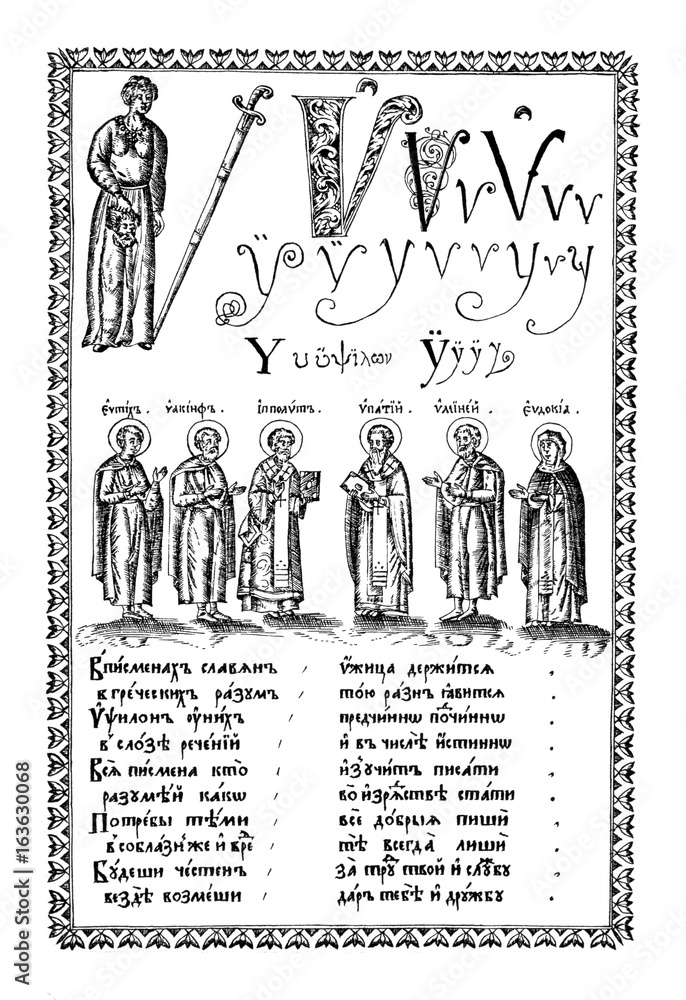 Ѵ Ѵ Ѵ Ѵ Ѵ Ѵ
Ѵ̈ Ѵ̈ У Ѵ Ѵ Ѵ Ч Ѵ
Υ υ ὔψίλων Ѷ ӱ ӱ ӱ
Єѵтіхъ. Ѵакінфъ. Іпполѵтъ. Ѵпатій. Ѵміней. Єѵдокіа.
Впісменахъ славянъ , ѵжица держится ,
в греческихъ разумъ , тою разнъ ꙗвится .
Ѵѱилонъ ѹ нихъ , предчиннѡ починнѡ ,
в слозѣ реченій , и въ числѣ истиннѡ .
Вся писмена кто , изучитъ писати ,
разумѣй какѡ , во изрядствѣ стати .
Потребы тѣми , все добрыя пиши ,
в соблазнже и вредъ , тѣ всегда лиши .
Будеши честенъ , за трудъ твой и службу ,
вездѣ возмеши , даръ тебѣ и дружбу .
Adobe Stock | #163630068